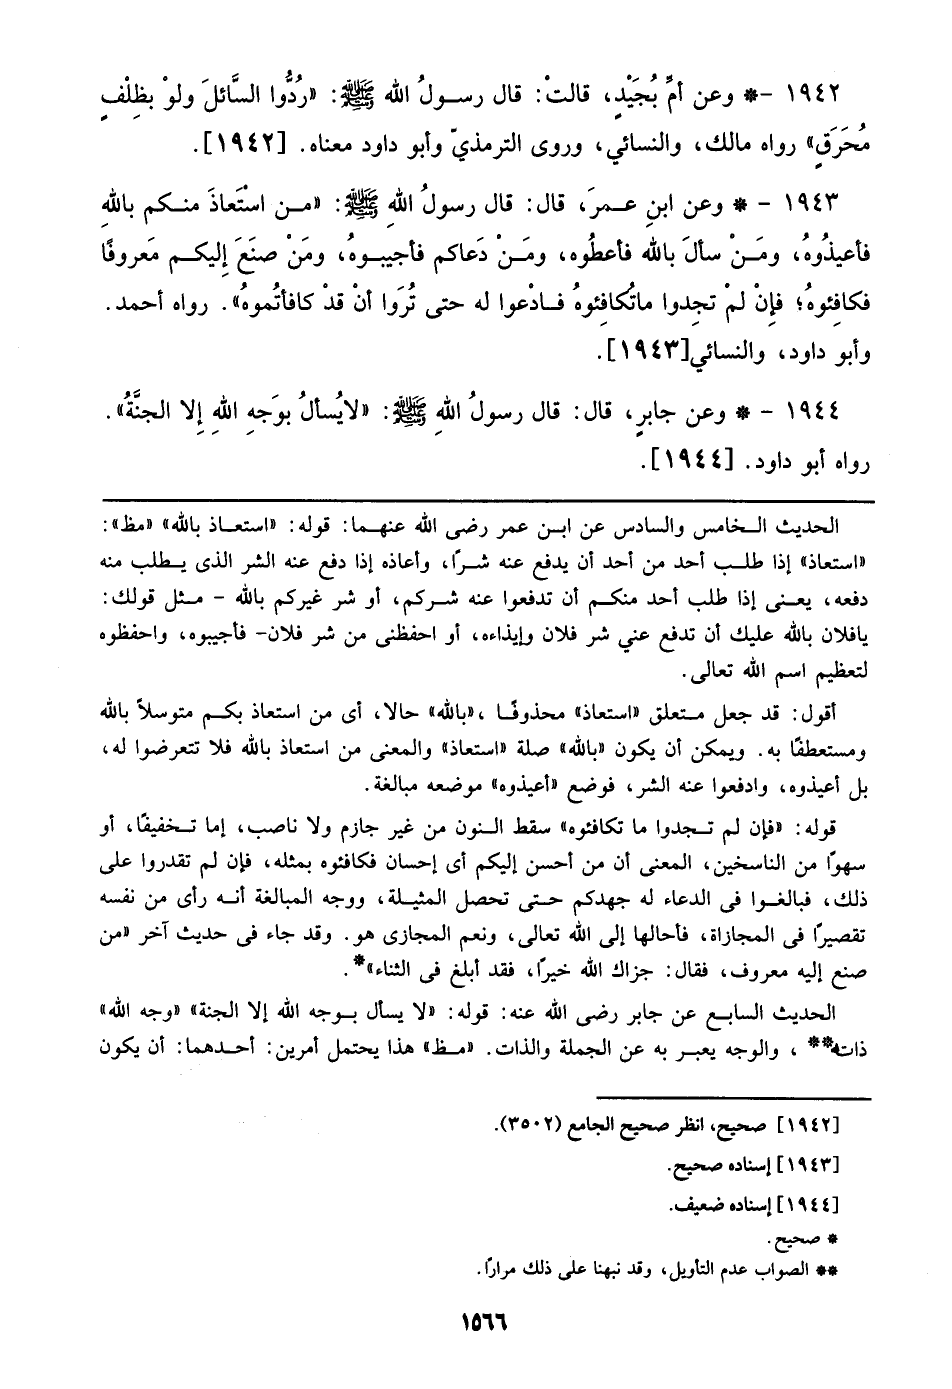 ١٩٤٢ -* وعن أمِّ بُجَيْدٍ، قالتْ: قال رسولُ الله ﷺ: «رُدُّوا السَّائلَ ولوْ بظِلْفٍ
مُحَرَقٍ» رواه مالك، والنسائي، وروى الترمذيّ وأبو داود معناه. [١٩٤٢].
١٩٤٣ - * وعن ابنِ عمرَ، قال: قال رسولُ اللهِ ﷺ: «من استْعاذَ منكم باللهِ
فأعيذُوهُ، ومَنْ سألَ بالله فأعطُوه، ومَنْ دَعاكم فأجيبوهُ، ومَنْ صنَعَ إليكم مَعروفًا
فكافِئوهُ؛ فإِنْ لمْ تجِدوا ماتُكافِئوهُ فادْعوا له حتى تُرَوا أنْ قدْ كافأتُموهُ». رواه أحمد.
وأبو داود، والنسائي[١٩٤٣].
١٩٤٤ - * وعن جابرٍ، قال: قال رسولُ اللهِ ﷺ: «لايُسألُ بوَجهِ اللهِ إِلا الجنَّةُ».
رواه أبو داود. [١٩٤٤].
الحديث الخامس والسادس عن ابن عمر رضى الله عنهما: قوله: «استعاذ بالله» «مظ»:
«استعاذ» إذا طلب أحد من أحد أن يدفع عنه شرًا، وأعاذه إذا دفع عنه الشر الذى يطلب منه
دفعه، يعنى إذا طلب أحد منكم أن تدفعوا عنه شركم، أو شر غيركم بالله - مثل قولك:
يافلان بالله عليك أن تدفع عني شر فلان وإيذاءه، أو احفظنى من شر فلان- فأجيبوه، واحفظوه
لتعظيم اسم الله تعالى.
أقول: قد جعل متعلق «استعاذ» محذوفًا ،«بالله» حالا، أى من استعاذ بكم متوسلاً بالله
ومستعطفًا به. ويمكن أن يكون «بالله» صلة «استعاذ» والمعنى من استعاذ بالله فلا تتعرضوا له،
بل أعيذوه، وادفعوا عنه الشر، فوضع «أعيذوه» موضعه مبالغة.
قوله: «فإن لم تجدوا ما تكافئوه» سقط النون من غير جازم ولا ناصب، إما تخفيفًا، أو
سهوًا من الناسخين، المعنى أن من أحسن إليكم أى إحسان فكافئوه بمثله، فإن لم تقدروا على
ذلك، فبالغوا فى الدعاء له جهدكم حتى تحصل المثيلة، ووجه المبالغة أنه رأى من نفسه
تقصيرًا فى المجازاة، فأحالها إلى الله تعالى، ونعم المجازى هو. وقد جاء فى حديث آخر «من
صنع إليه معروف، فقال: جزاك الله خيرًا، فقد أبلغ فى الثناء»*.
الحديث السابع عن جابر رضى الله عنه: قوله: «لا يسأل بوجه الله إلا الجنة» «وجه الله»
ذاته** ، والوجه يعبر به عن الجملة والذات. «مظ» هذا يحتمل أمرين: أحدهما: أن يكون
[١٩٤٢] صحيح، انظر صحيح الجامع (٣٥٠٢).
[١٩٤٣] إسناده صحيح.
[١٩٤٤] إسناده ضعيف.
* صحيح.
** الصواب عدم التأويل، وقد نبهنا على ذلك مرارًا.
١٥٦٦